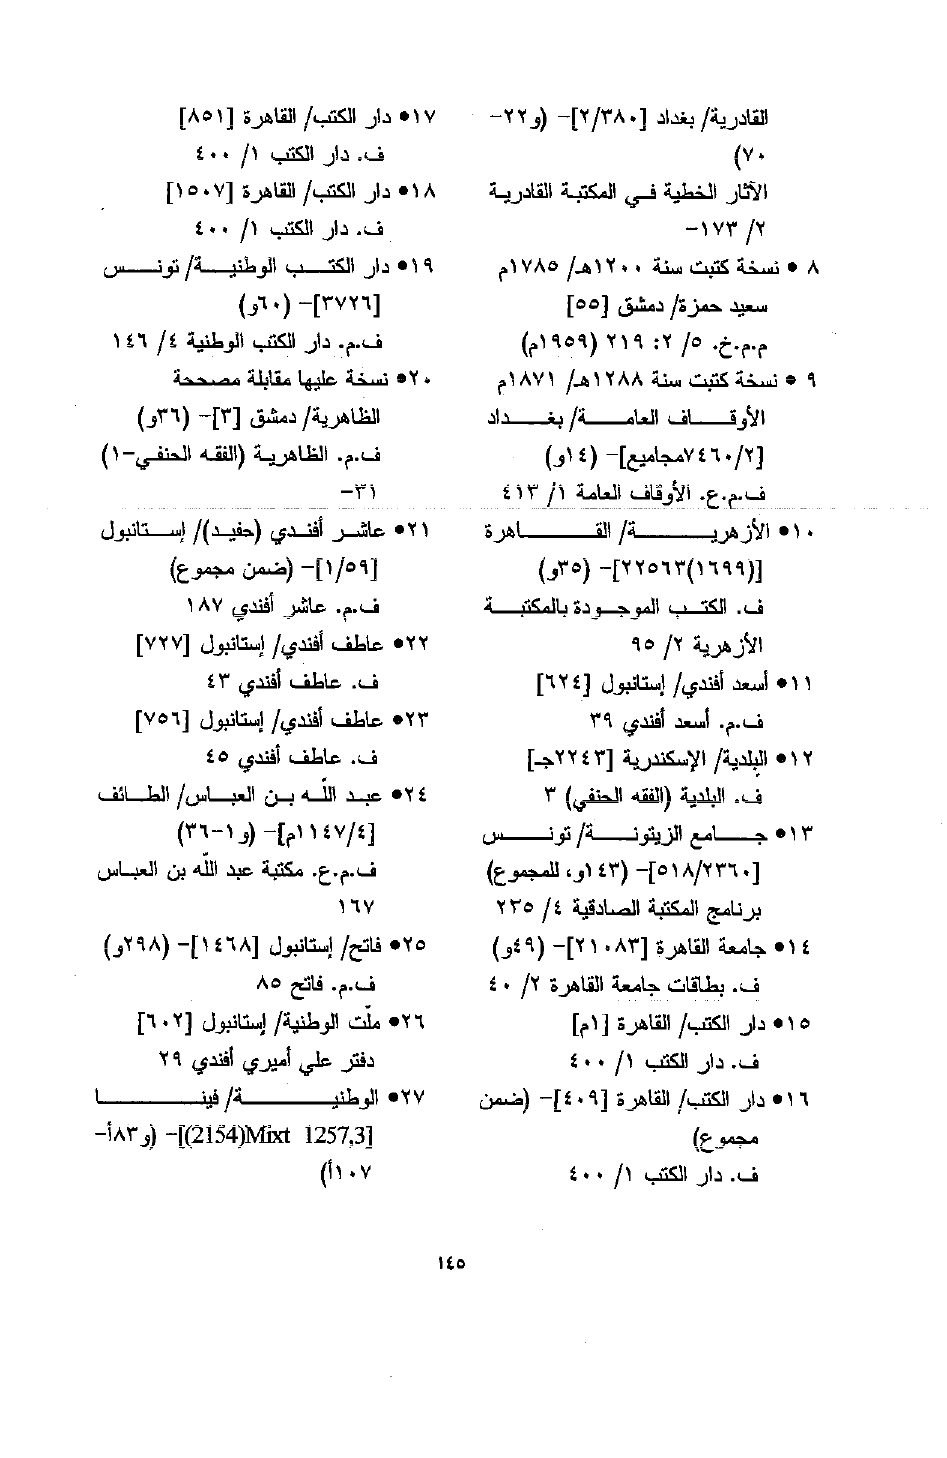 القادرية/ بغداد [٢/٣٨٠]- (و٢٢-
٧٠)
الآثار الخطية في المكتبة القادرية
٢/ ١٧٣-
٨ • نسخة كتبت سنة ١٢٠٠هـ/ ١٧٨٥م
سعيد حمزة/ دمشق [٥٥]
م.م.خ. ٥/ ٢: ٢١٩ (١٩٥٩م)
٩ • نسخة كتبت سنة ١٢٨٨هـ/ ١٨٧١م
الأوقاف العامة/ بغداد
[٧٤٦٠/٢مجاميع]- (١٤و)
ف.م.ع. الأوقاف العامة ١/ ٤١٣
١٠• الأزهرية/ القاهرة
[(١٦٩٩)٢٢٥٦٣]- (٣٥و)
ف. الكتب الموجودة بالمكتبة
الأزهرية ٢/ ٩٥
١١• أسعد أفندي/ إستانبول [٦٢٤]
ف.م. أسعد أفندي ٣٩
١٢• البلدية/ الإسكندرية [٢٢٤٣جـ]
ف. البلدية (الفقه الحنفي) ٣
١٣• جامع الزيتونة/ تونس
[٥١٨/٢٣٦٠]- (١٤٣و، للمجموع)
برنامج المكتبة الصادقية ٤/ ٢٣٥
١٤• جامعة القاهرة [٢١٠٨٣]- (٤٩و)
ف. بطاقات جامعة القاهرة ٢/ ٤٠
١٥• دار الكتب/ القاهرة [١م]
ف. دار الكتب ١/ ٤٠٠
١٦• دار الكتب/ القاهرة [٤٠٩]- (ضمن
مجموع)
ف. دار الكتب ١/ ٤٠٠
١٧• دار الكتب/ القاهرة [٨٥١]
ف. دار الكتب ١/ ٤٠٠
١٨• دار الكتب/ القاهرة [١٥٠٧]
ف. دار الكتب ١/ ٤٠٠
١٩• دار الكتب الوطنية/ تونس
[٣٧٢٦]- (٦٠و)
ف.م. دار الكتب الوطنية ٤/ ١٤٦
٢٠• نسخة عليها مقابلة مصححة
الظاهرية/ دمشق [٣]- (٣٦و)
ف.م. الظاهرية (الفقه الحنفي-١)
٣١-
٢١• عاشر أفندي (حفيد)/ إستانبول
[١/٥٩]- (ضمن مجموع)
ف.م. عاشر أفندي ١٨٧
٢٢• عاطف أفندي/ إستانبول [٧٢٧]
ف. عاطف أفندي ٤٣
٢٣• عاطف أفندي/ إستانبول [٧٥٦]
ف. عاطف أفندي ٤٥
٢٤• عبد الله بن العباس/ الطائف
[١١٤٧/٤م]- (و١-٣٦)
ف.م.ع. مكتبة عبد الله بن العباس
١٦٧
٢٥• فاتح/ إستانبول [١٤٦٨]- (٢٩٨و)
ف.م. فاتح ٨٥
٢٦• ملّت الوطنية/ إستانبول [٦٠٢]
دفتر علي أميري أفندي ٢٩
٢٧• الوطنية/ فينا
[(2154)Mixt 1257,3]- (و٨٣أ-
١٠٧أ)
١٤٥